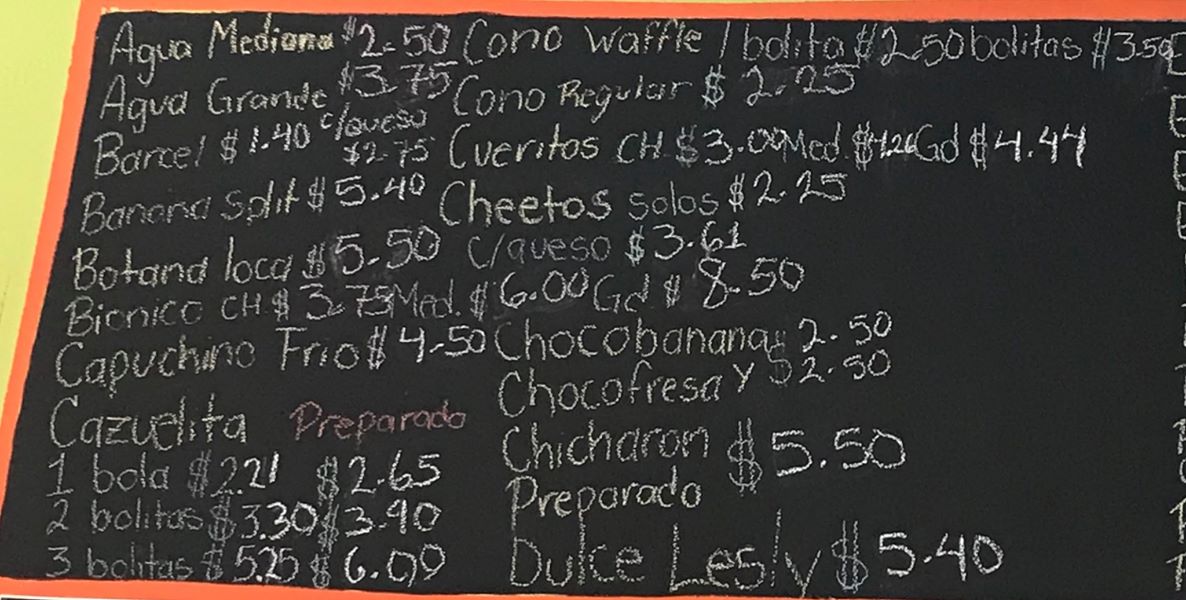 Agua Mediana $2.50
Agua Grande $3.75
Barcel $1.40 c/queso $2.75
Banana Split $5.40
Botana loca $5.50
Bionico CH $3.75 Med. $6.00 Gd $8.50
Capuchino Frio $4.50
Cazuelita Preparado
1 bola $2.21 $2.65
2 bolitas $3.30 $3.90
3 bolitas $5.25 $6.00
Cono Waffle 1 bolita $2.50 bolitas $3.50
Cono Regular $2.25
Cueritos CH $3.00 Med. $4.26 Gd $4.44
Cheetos solos $2.25
c/queso $3.61
Chocobanana $2.50
Chocofresa y $2.50
Chicharon $5.50
Preparado
Dulce Lesly $5.40